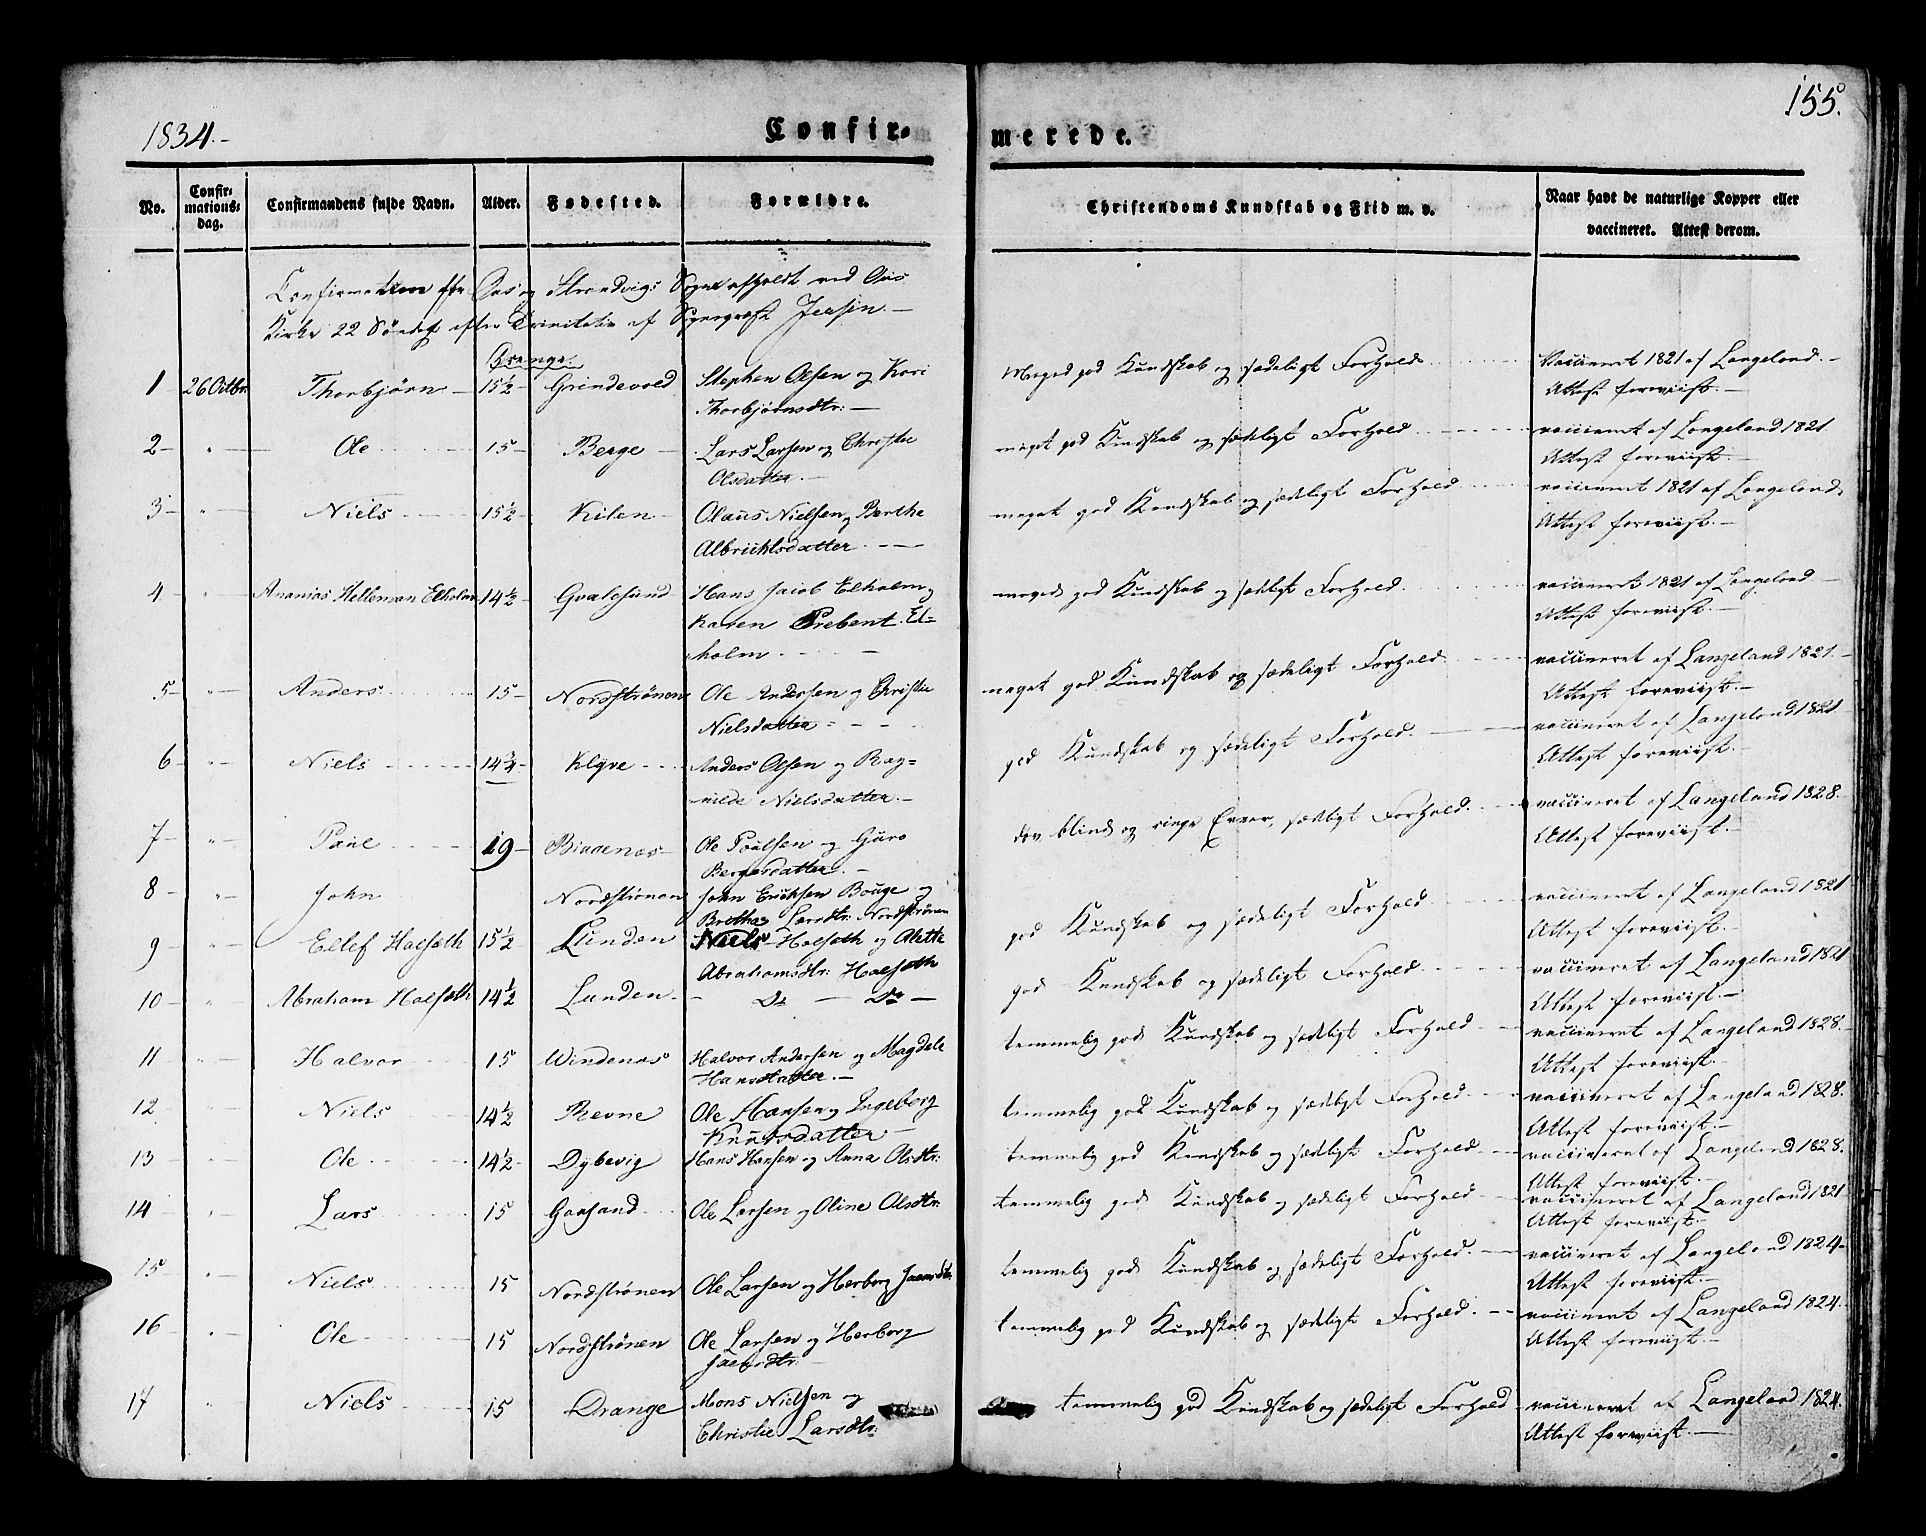 1834.-
Confir-
merede.
155.
No.
Confir-
mations-
dag.
Confirmandens fulde Navn.
Alder.
Fødested.
Forældre.
Christendoms Kundskab og Flid m. v.
Naar havt de naturlige Kopper eller
vaccineret. Attest derom.
Confirmation for Oos og Strandvigs Sogne afholdt ved Oos
Kirke 22 Søndag efter Trinitatis af Sognepræst Jersin.-
Drenge.
1 26 Octbr. Thorbjörn 15½ Grindevold Stephen Olsen og Kari
Thorbjörnsdtr:
Meget god Kundskab og sædeligt Forhold
Vaccineret 1821 af Langeland.-
Attest foreviist.-
2 " Ole 15 Berge Lars Larsen og Christie
Olsdatter.
meget god Kundskab og sædeligt Forhold
vaccineret af Langeland 1821
Attest foreviist.-
3 " Niels 15½ Kilen Olaus Nielsen og Berthe
Albrichtsdatter
meget god Kundskab og sædeligt Forhold
vaccineret 1821 af Langeland
Attest foreviist.-
4 " Ananias Helleman Elholm 14½ Gvalesund Hans Jacob Elholm og
Karen Prebent. El=
holm
meget god Kundskab og sædeligt Forhold.
vaccineret 1821 af Langeland
Attest foreviist.-
5 " Anders 15 Nordströnen Ole Andersen og Christie
Nielsdatter
meget god Kundskab og sædeligt Forhold
vaccineret af Langeland 1821.-
Attest foreviist.-
6 " Niels 14¾ Klyve Anders Olsen og Rag=
nilde Nielsdatter.-
god Kundskab og sædeligt Forhold.
vaccineret af Langeland 1821
Attest foreviist.-
7 " Paul 19 Ole Poulsen og Guro
Bergesdatter.-
blind og ringe Evner, sædeligt Forhold.
vaccineret af Langeland 1828.
Attest foreviist.-
8 " John Nordströnen John Erichsen Bouge og
Brethe Larsdtr: Nordströnen
god Kundskab og sædeligt Forhold
vaccineret af Langeland 1821
Attest foreviist.-
9 " Ellef Holseth 15½ Lunden Niels Holseth og Alette
Abrahamsdtr: Holseth
god Kundskab og sædeligt Forhold
vaccineret af Langeland 1821
Attest foreviist.-
10 " Abraham Holseth 14½ Lunden - Do - Do -
temmelig god Kundskab og sædeligt Forhold
vaccineret af Langeland 1828.
Attest foreviist.-
11 " Halvor 15 Windenes Halvor Andersen og Magdele
Hansdatter.-
temmelig god Kundskab og sædeligt Forhold.
vaccineret af Langeland 1828.
Attest foreviist.-
12 " Niels 14½ Revne Ole Hansen og Ingeborg
Knudsdatter
temmelig god Kundskab og sædeligt Forhold
vaccineret af Langeland 1828.
Attest foreviist.-
13 " Ole 14½ Dybevig Hans Hansen og Anna Olsdtr:
temmelig god Kundskab og sædeligt Forhold
vaccineret af Langeland 1821
14 " Lars 15 Gaasand Ole Larsen og Oline Olsdtr:
Attest foreviist.-
15 " Niels 15 Nordströnen Ole Larsen og Herborg
temmelig god Kundskab og sædeligt Forhold.
vaccineret af Langeland 1824.
Attest foreviist.-
16 " Ole 15 Nordströnen Ole Larsen og Herborg
temmelig god Kundskab og sædeligt Forhold.
vaccineret af Langeland 1824.
Attest foreviist.-
17 " Niels 15 Drange Mons Nielsen og
Christie Larsdtr:
temmelig god Kundskab og sædeligt Forhold
vaccineret af Langeland 1824.
Attest foreviist.-